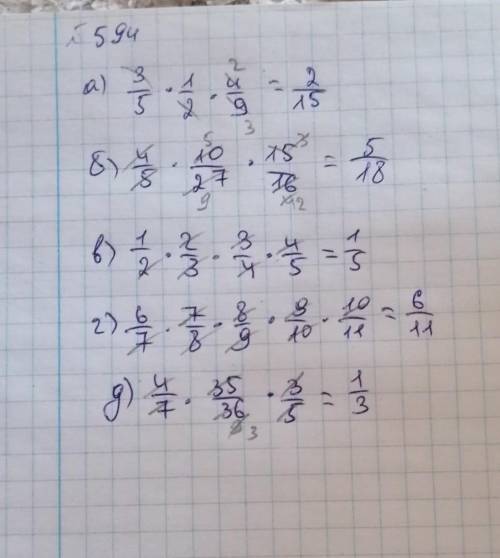 №594
а) 3/5 · 1/2 · 4/9 = 2/15
б) 4/5 · 10/27 · 15/16 = 5/18
в) 1/2 · 2/3 · 3/4 · 4/5 = 1/5
г) 6/7 · 7/8 · 8/9 · 9/10 · 10/11 = 6/11
д) 4/7 · 35/36 · 3/5 = 1/3